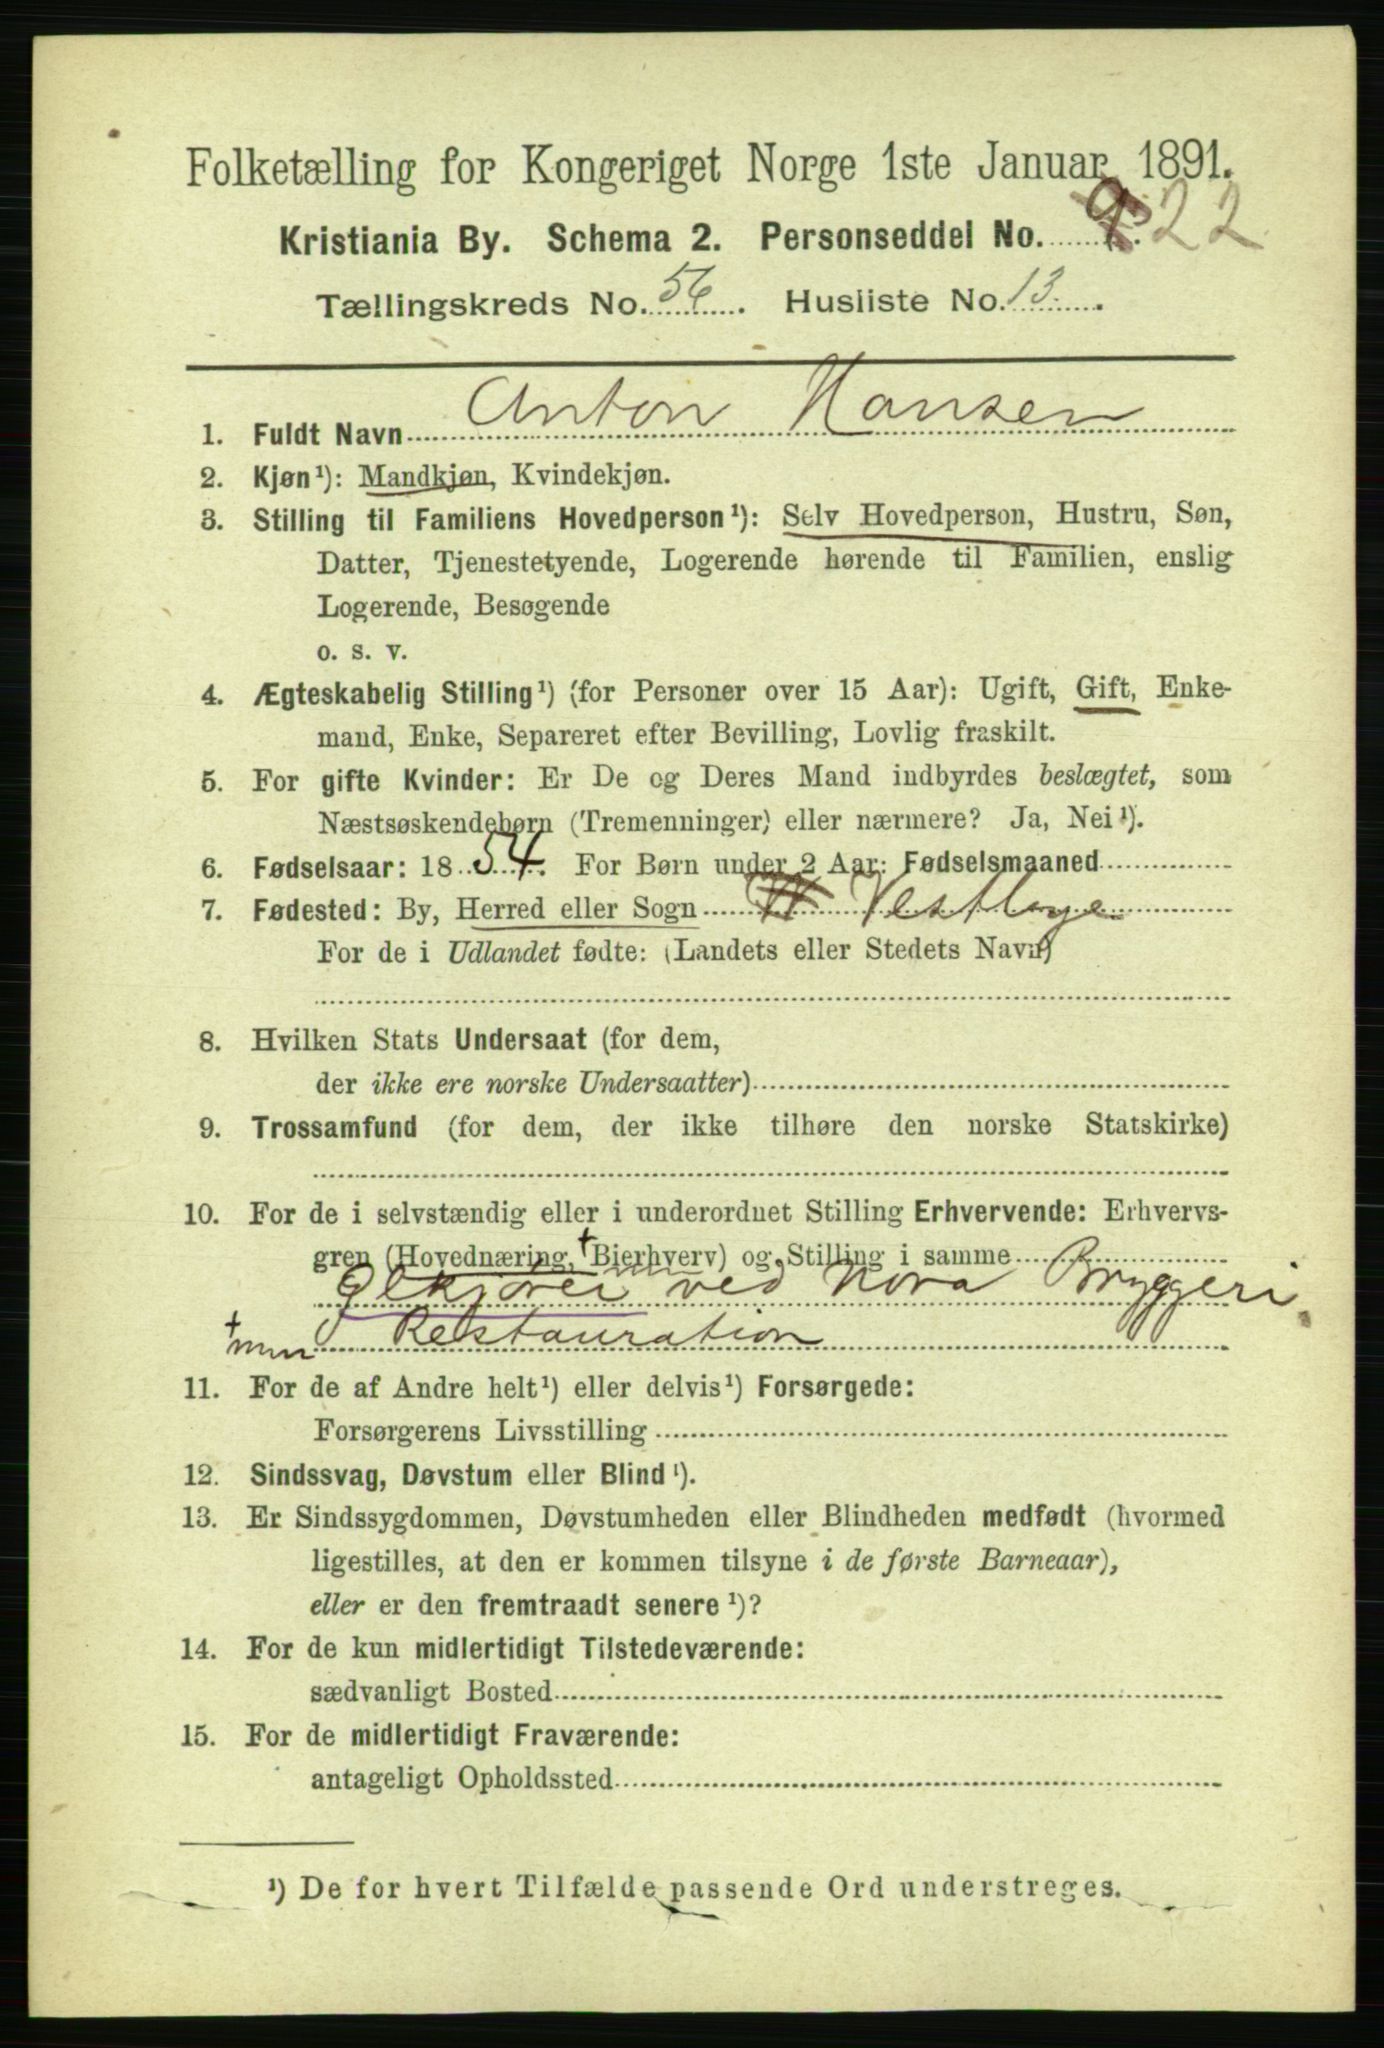 Folketælling for Kongeriget Norge 1ste Januar 1891.
Kristiania By. Schema 2. Personseddel No. 22
Tællingskreds No. 56. Husliste No. 13.
1. Fuldt Navn Anton Hansen
2. Kjøn¹): Mandkjøn, Kvindekjøn.
3. Stilling til Familiens Hovedperson¹): Selv Hovedperson, Hustru, Søn,
Datter, Tjenestetyende, Logerende hørende til Familien, enslig
Logerende, Besøgende
o. s. v.
4. Ægteskabelig Stilling¹) (for Personer over 15 Aar): Ugift, Gift, Enke-
mand, Enke, Separeret efter Bevilling, Lovlig fraskilt.
5. For gifte Kvinder: Er De og Deres Mand indbyrdes beslægtet, som
Næstsøskendebørn (Tremenninger) eller nærmere? Ja, Nei¹).
6. Fødselsaar: 1854. For Børn under 2 Aar: Fødselsmaaned
7. Fødested: By, Herred eller Sogn
For de i Udlandet fødte: (Landets eller Stedets Navn)
8. Hvilken Stats Undersaat (for dem,
der ikke ere norske Undersaatter)
9. Trossamfund (for dem, der ikke tilhøre den norske Statskirke)
10. For de i selvstændig eller i underordnet Stilling Erhvervende: Erhvervs-
gren (Hovednæring, Bierhverv) og Stilling i samme
Ølkjører ved Nora Bryggeri
Restauration
11. For de af Andre helt¹) eller delvis¹) Forsørgede:
Forsørgerens Livsstilling
12. Sindssvag, Døvstum eller Blind¹).
13. Er Sindssygdommen, Døvstumheden eller Blindheden medfødt (hvormed
ligestilles, at den er kommen tilsyne i de første Barneaar),
eller er den fremtraadt senere¹)?
14. For de kun midlertidigt Tilstedeværende:
sædvanligt Bosted
15. For de midlertidigt Fraværende:
antageligt Opholdssted
¹) De for hvert Tilfælde passende Ord understreges.